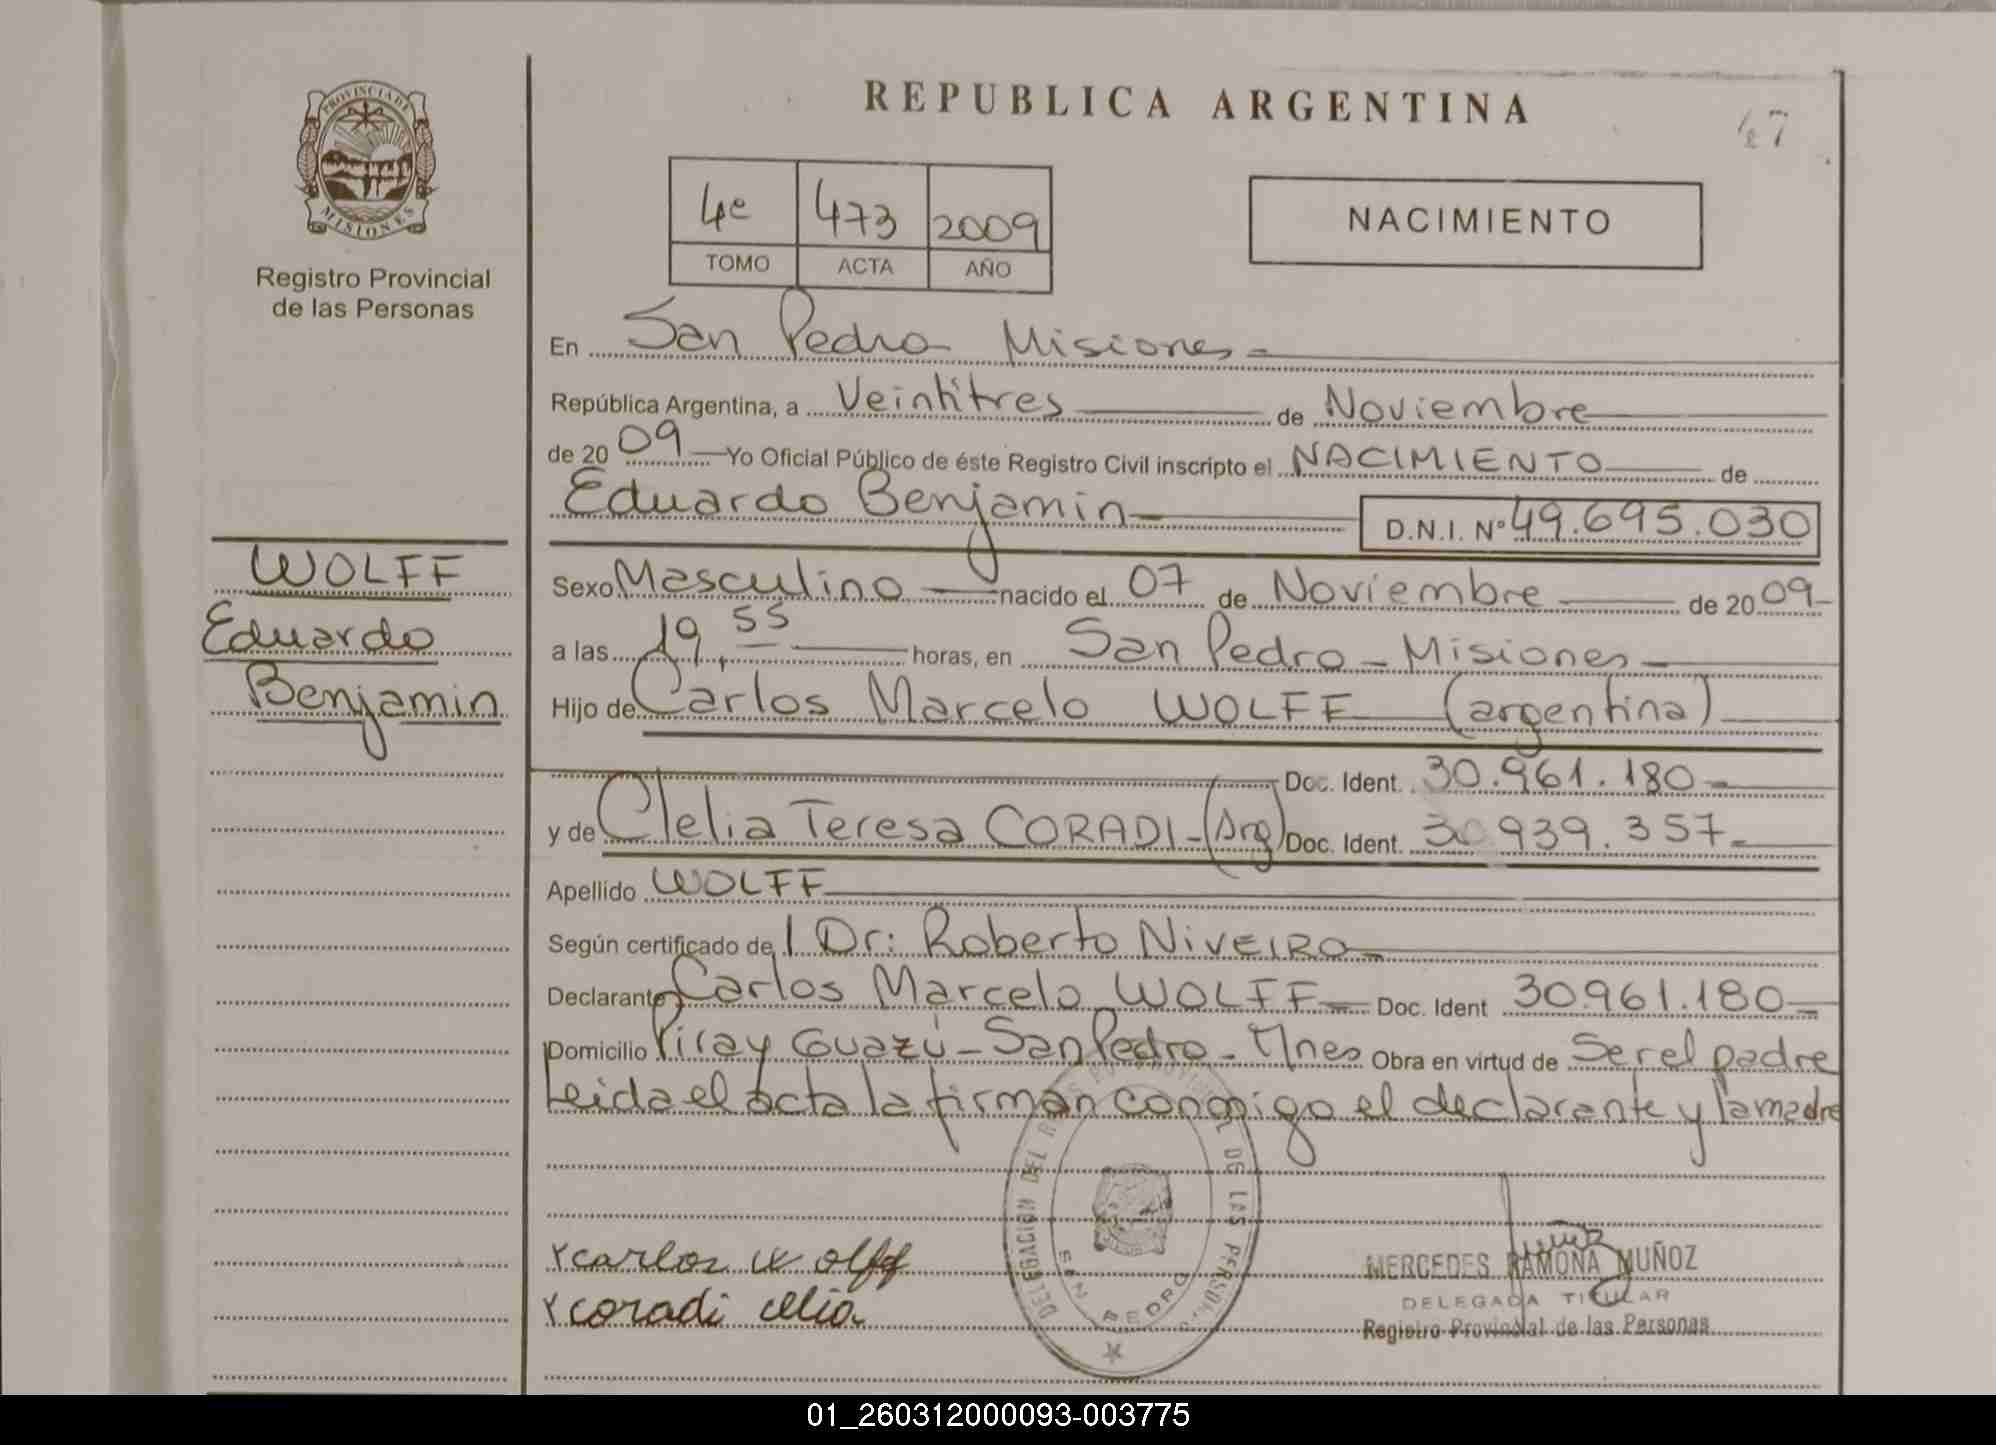 REPUBLICA ARGENTINA
47
PROVINCIA DE
MISIONES
Registro Provincial
de las Personas
4º 473 2009
TOMO ACTA AÑO
NACIMIENTO
En San Pedro Misiones
República Argentina, a Veintitres de Noviembre
de 2009 Yo Oficial Público de éste Registro Civil inscripto el NACIMIENTO de
Eduardo Benjamin D.N.I. Nº 49.695.030
WOLFF
Eduardo
Benjamin
Sexo Masculino nacido el 07 de Noviembre de 2009
a las 19,55 horas, en San Pedro - Misiones
Hijo de Carlos Marcelo WOLFF (argentina)
Doc. Ident. 30.961.180
y de Clelia Teresa CORADI - (Arg) Doc. Ident. 30 939.357
Apellido WOLFF
Según certificado del Dr: Roberto NIVEIRO
Declarante Carlos Marcelo WOLFF Doc. Ident 30961.180
Domicilio Piray Guazú - San Pedro - Mnes Obra en virtud de Ser el padre
Leida el acta la firman conmigo el declarante y la madre
DELEGACION DEL REG. PROVINCIAL DE LAS PERSONAS
SAN PEDRO
x carlos wolff
x coradi clelia
MERCEDES RAMONA MUÑOZ
DELEGADA TITULAR
Registro Provincial de las Personas
01_260312000093-003775